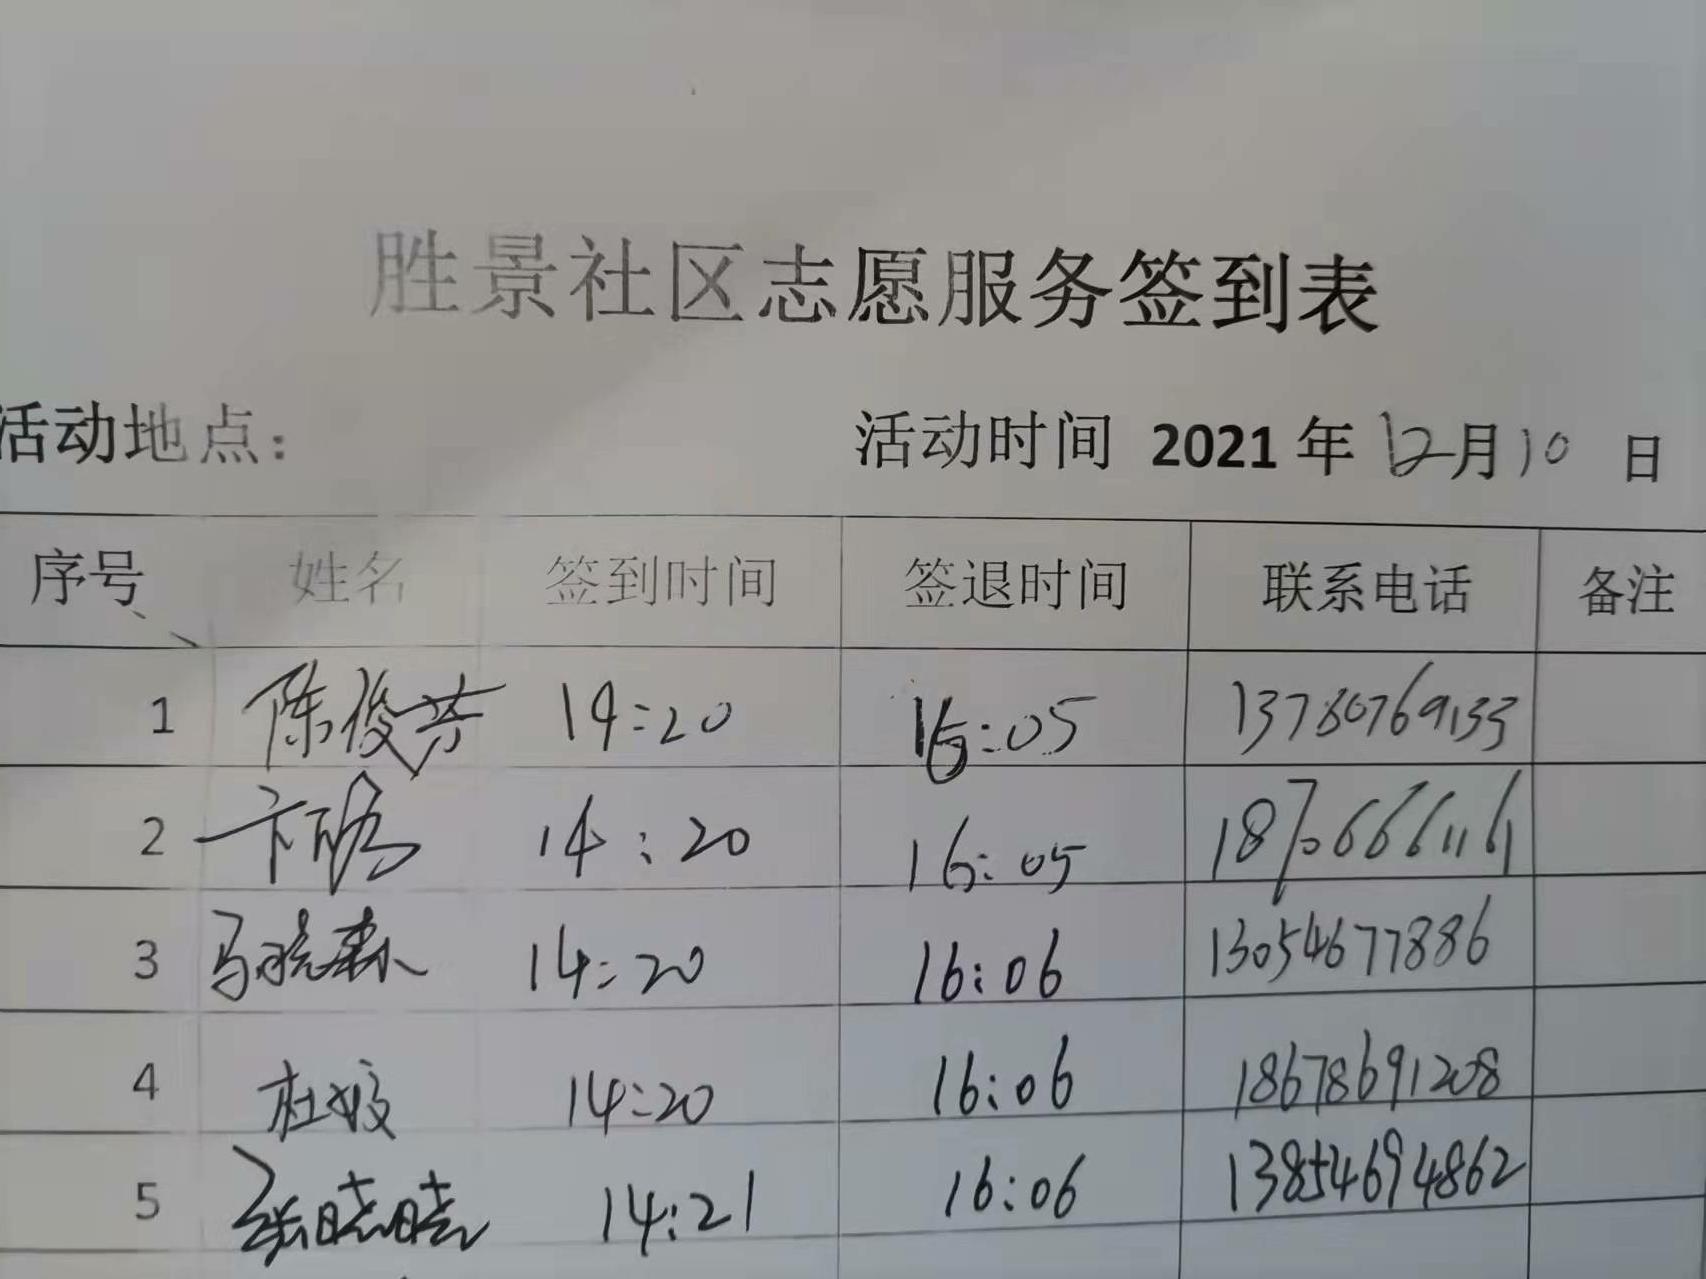 胜景社区志愿服务签到表
活动地点： 活动时间 2021 年 12月10 日
序号 姓名 签到时间 签退时间 联系电话 备注
1 陈俊芳 14:20 16:05 13780769133
2 14:20 16:05 18706661161
3 马晓森 14:20 16:06 13054677886
4 杜姣 14:20 16:06 18678691208
5 张晓晓 14:21 16:06 13854694862